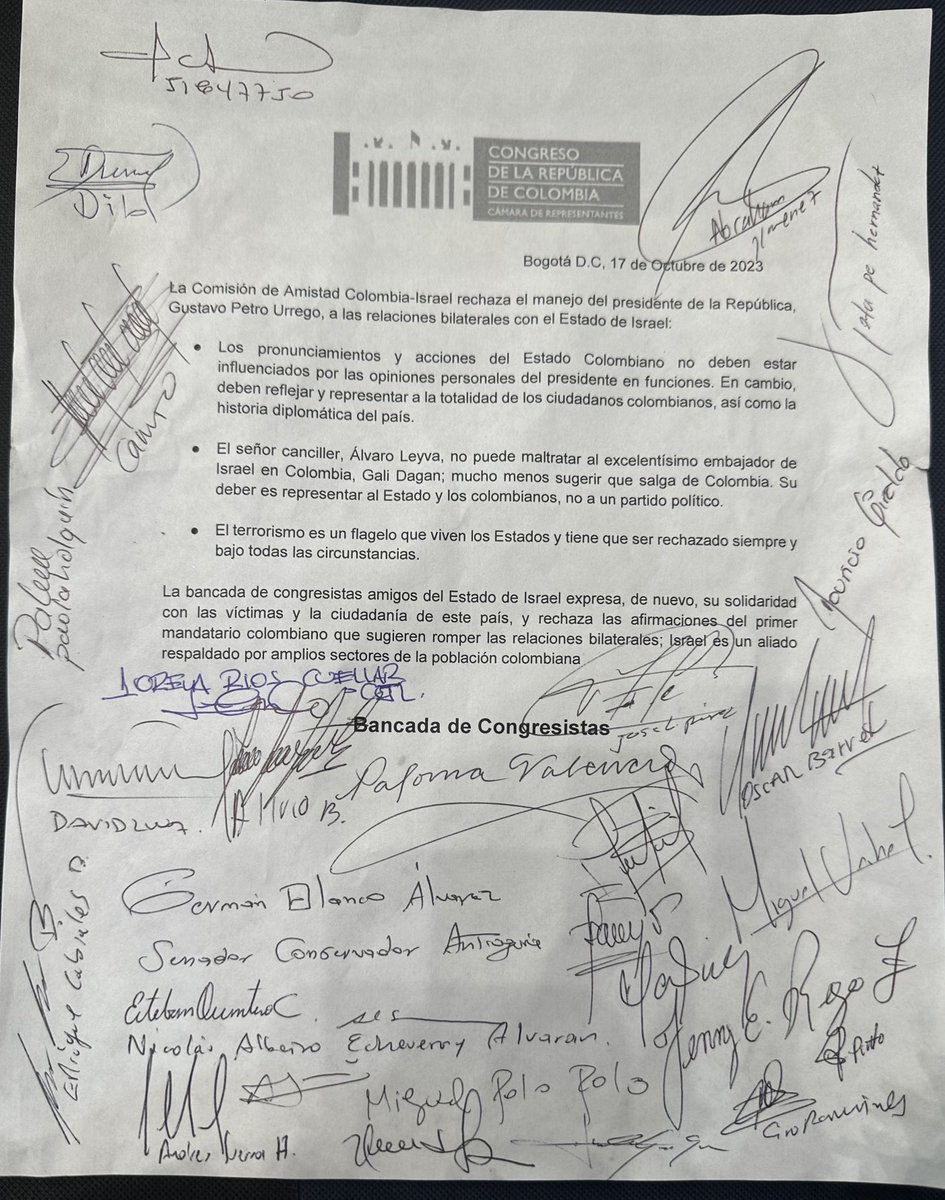 51847750
CONGRESO
DE LA REPÚBLICA
DE COLOMBIA
CÁMARA DE REPRESENTANTES
Abraham
Jimenez
Bogotá D.C, 17 de Octubre de 2023
La Comisión de Amistad Colombia-Israel rechaza el manejo del presidente de la República,
Gustavo Petro Urrego, a las relaciones bilaterales con el Estado de Israel:
• Los pronunciamientos y acciones del Estado Colombiano no deben estar
influenciados por las opiniones personales del presidente en funciones. En cambio,
deben reflejar y representar a la totalidad de los ciudadanos colombianos, así como la
historia diplomática del país.
• El señor canciller, Álvaro Leyva, no puede maltratar al excelentísimo embajador de
Israel en Colombia, Gali Dagan; mucho menos sugerir que salga de Colombia. Su
deber es representar al Estado y los colombianos, no a un partido político.
• El terrorismo es un flagelo que viven los Estados y tiene que ser rechazado siempre y
bajo todas las circunstancias.
La bancada de congresistas amigos del Estado de Israel expresa, de nuevo, su solidaridad
con las víctimas y la ciudadanía de este país, y rechaza las afirmaciones del primer
mandatario colombiano que sugieren romper las relaciones bilaterales; Israel es un aliado
respaldado por amplios sectores de la población colombiana
hernandez
Mauricio Giraldo
paola holguín
LORENA RIOS CUELLAR
Bancada de Congresistas
Paloma Valencia
OSCAR
DAVID LUNA.
Miguel Uribe
Germán Blanco Álvarez
Senador Conservador Antioquia
Esteban Quintero C.
Nicolás Albeiro Echeverry Alvaran.
Enrique Cabrales B.
Jenny E. Rozo
Pinto
Miguel Polo Polo
Ciro Ramirez